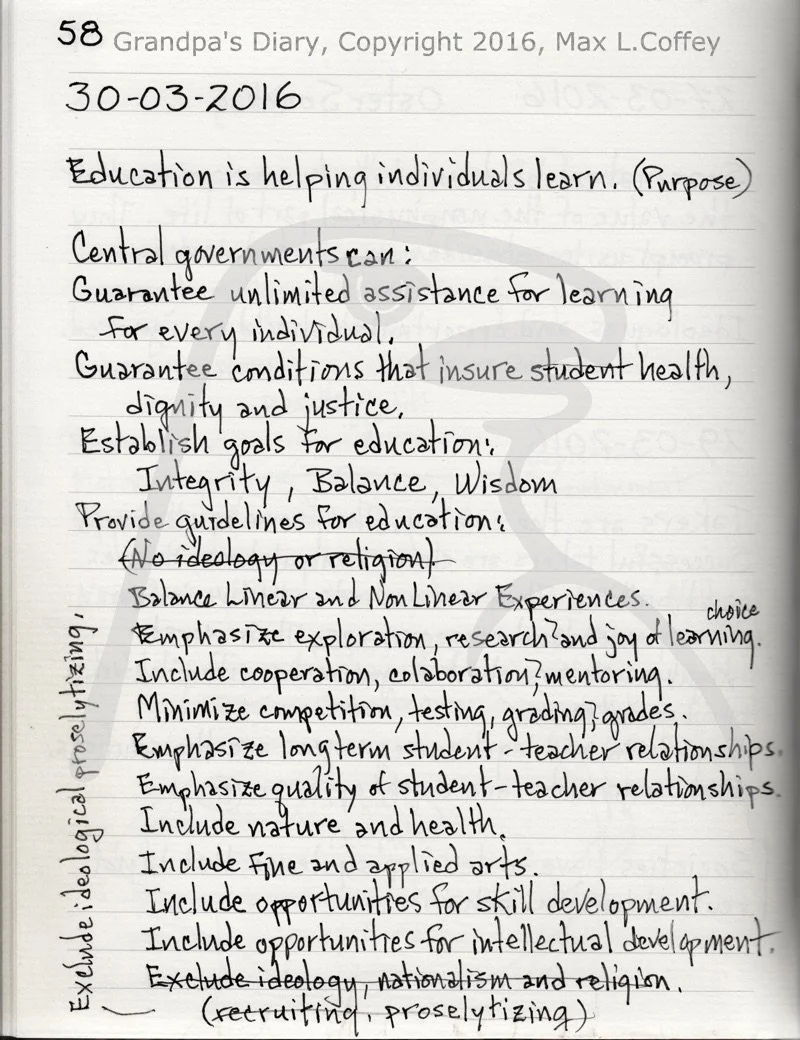 58 Grandpa's Diary, Copyright 2016, Max L.Coffey
30-03-2016
Education is helping individuals learn. (Purpose)
Central governments can:
Guarantee unlimited assistance for learning
for every individual.
Guarantee conditions that insure student health,
dignity and justice.
Establish goals for education:
Integrity, Balance, Wisdom
Provide guidelines for education:
(No ideology or religion)
Balance Linear and NonLinear Experiences.
choice
Emphasize exploration, research & and joy of learning.
Include cooperation, colaboration & mentoring.
Minimize competition, testing, grading & grades.
Emphasize longterm student-teacher relationships.
Emphasize quality of student-teacher relationships.
Include nature and health.
Include fine and applied arts.
Include opportunities for skill development.
Include opportunities for intellectual development.
Exclude ideology, nationalism and religion.
(recruiting, proselytizing)
Exclude ideological proselytizing.